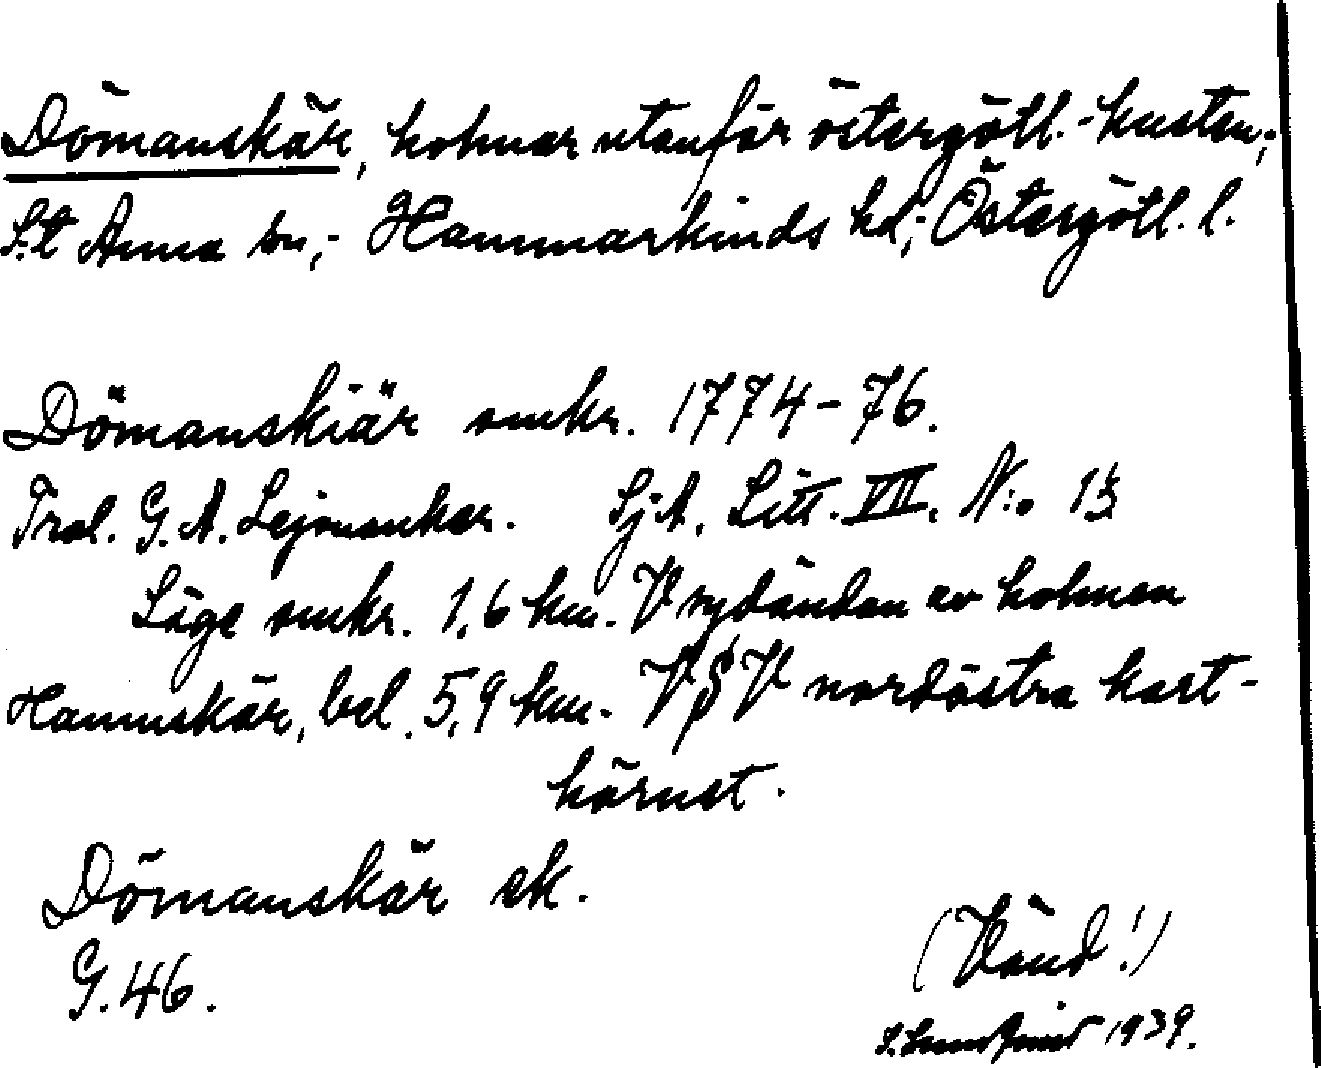 Dömanskär, holmar utanför östergötl.-kusten;
S:t Anna sn,- Hammarkinds hd,- Östergötl. l.
Dömanskiär omkr. 1774-76.
Trol. G. A. Lejonanker. SjA, Litt. VII. N:o 13
Läge omkr. 1,6 km. V sydändan av holmen
Hamnskär, bel. 5,9 km. VSV nordöstra kart-
hörnet.
Dömanskär ek.
G. 46.
(Vänd!)
1939.